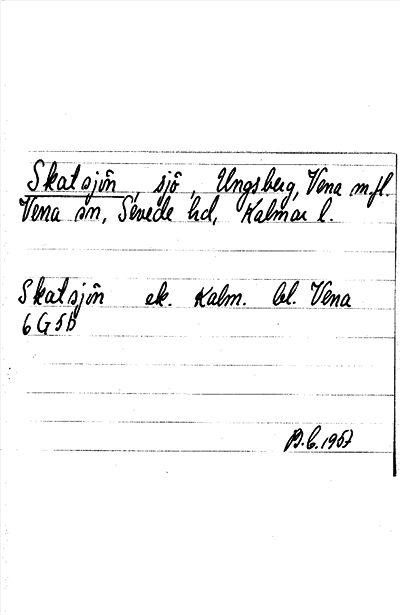 Skatsjön, sjö, Ungsberg, Vena m.fl.
Vena sn, Sevede hd, Kalmar l.
Skatsjön ek. Kalm. bl. Vena
6G5b
B.C. 1957